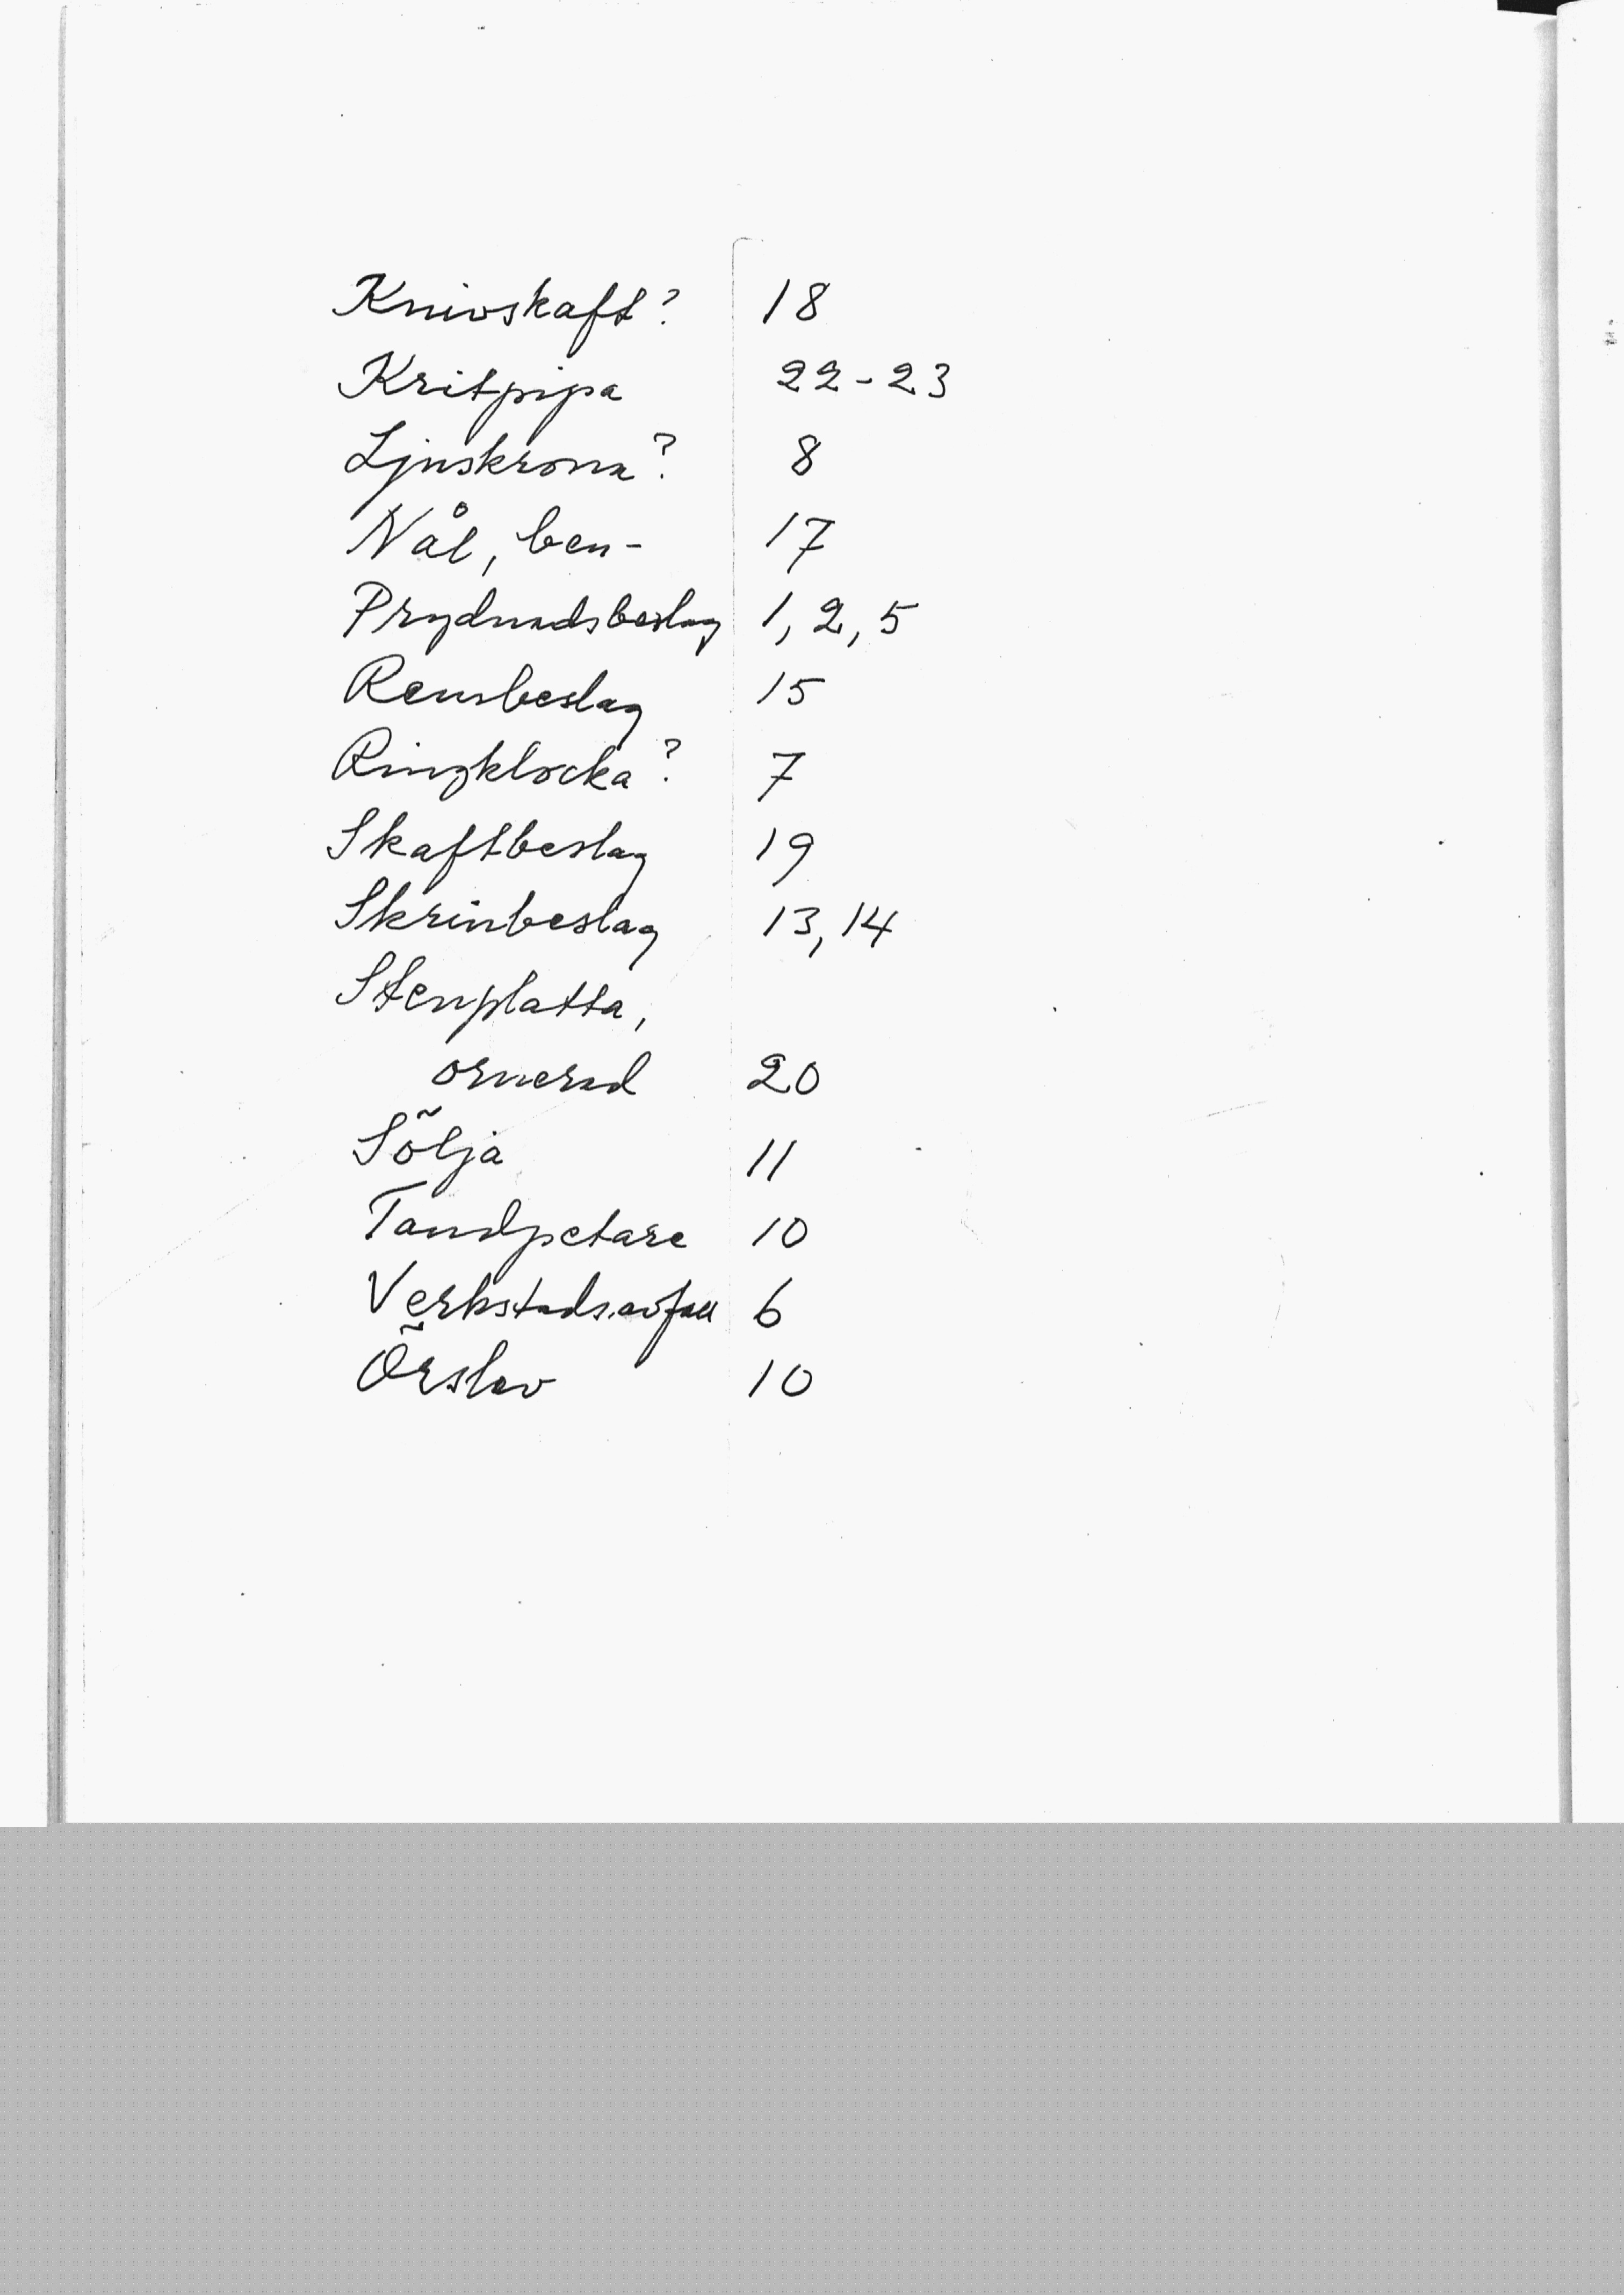 Knivskaft? 18
Kritpipa 22-23
Ljuskrona? 8
Nål, ben- 17
Prydnadsbeslag 1, 2, 5
Rembeslag 15
Ringklocka? 7
Skaftbeslag 19
Skrinbeslag 13, 14
Stenplatta,
ornerad 20
Sölja 11
Tandpetare 10
Verkstadsavfall 6
Örslev 10